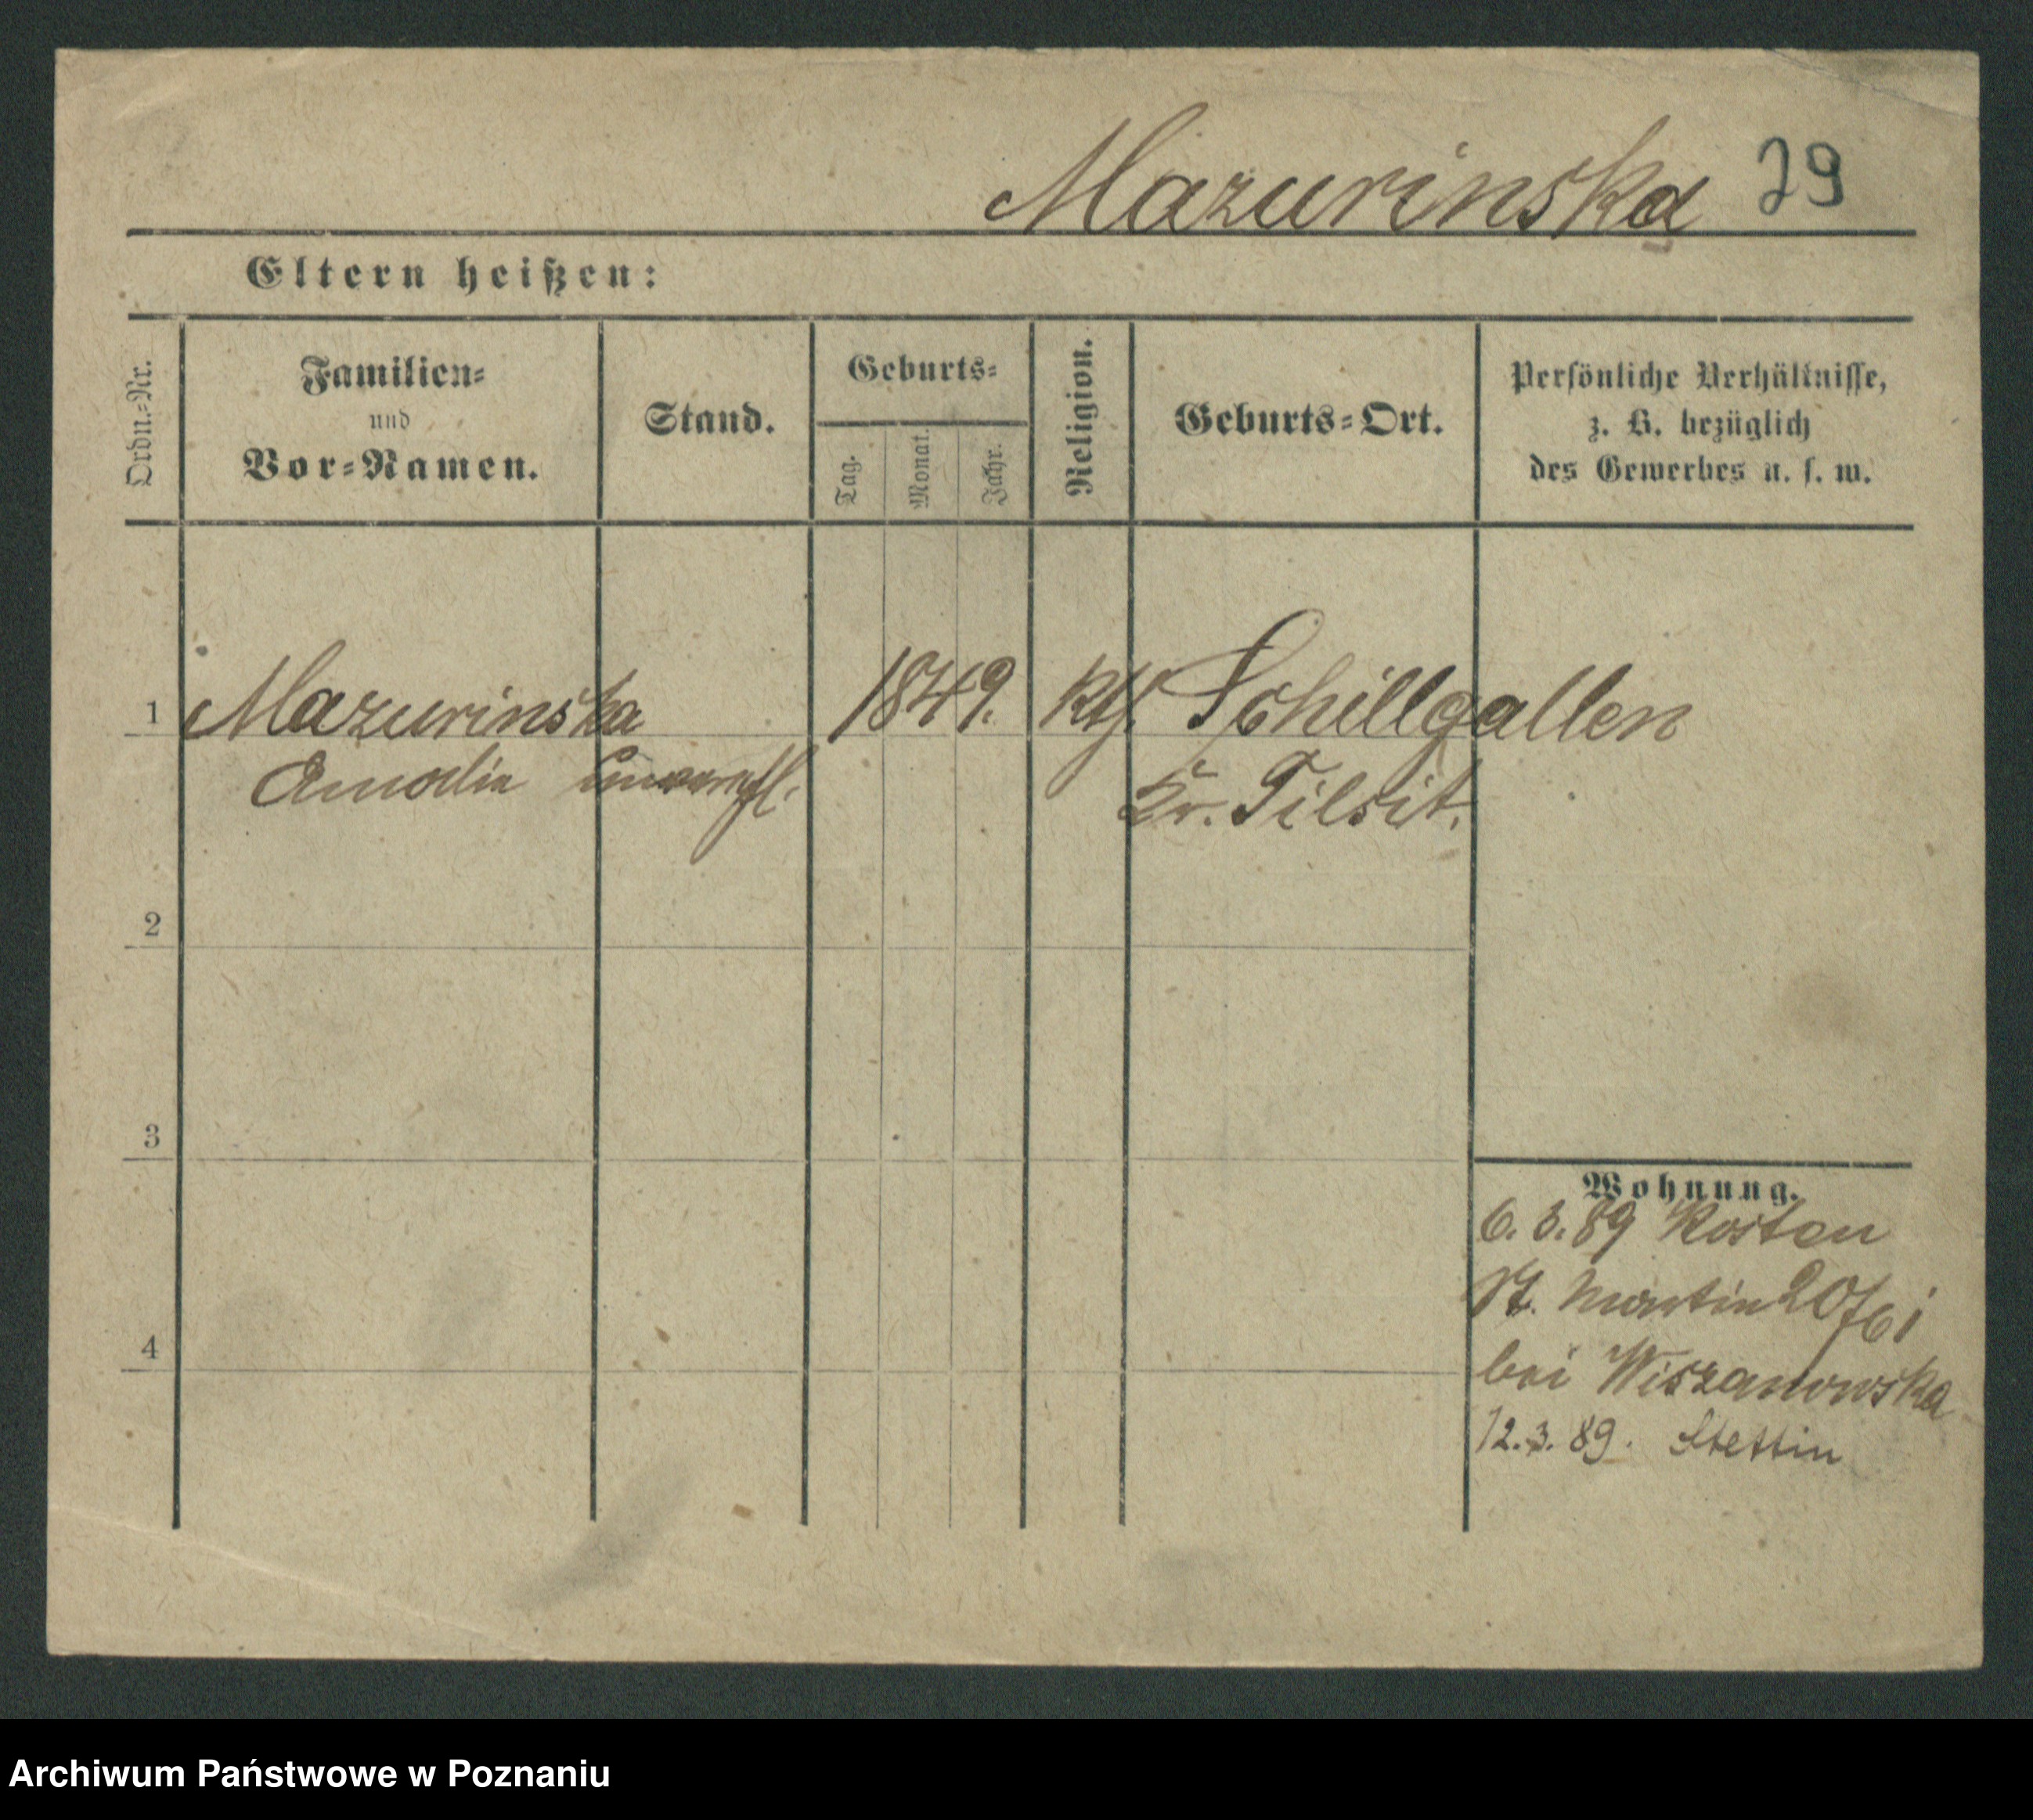 Mazurinska 29
Eltern heißen:
Ordn.-Nr.
Familien-
und
Vor-Namen.
Stand.
Geburts-
Tag.
Monat.
Jahr.
Religion.
Geburts-Ort.
Persönliche Verhältnisse,
z. B. bezüglich
des Gewerbes u. s. w.
1 Mazurinska 1849. kth. Schillgallen
Amalia unverehl. Kr. Tilsit.
2
3
4
Wohnung.
6. 3. 89 Kosten
St. Martin 20/61
bei Wiszanowska
12. 3. 89. Stettin
Archiwum Państwowe w Poznaniu